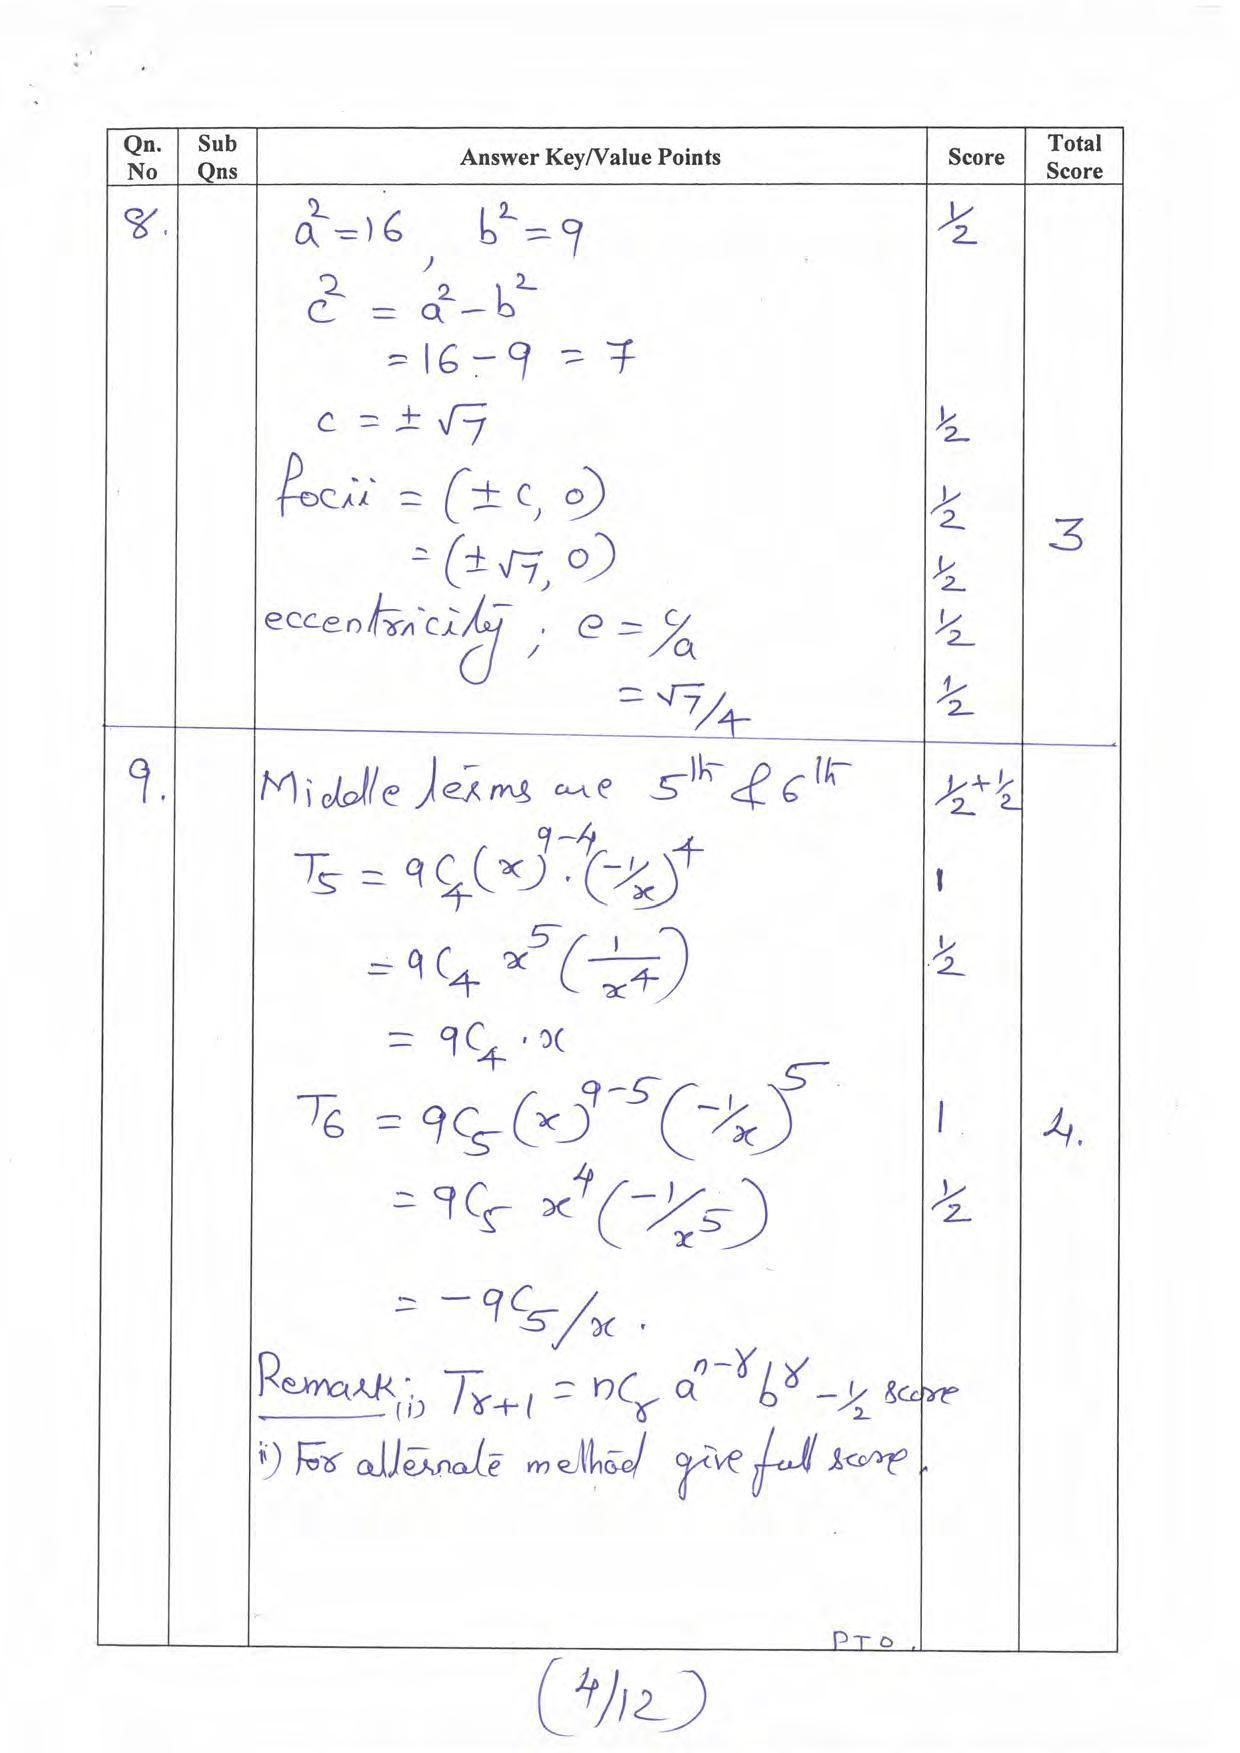 Qn. No Sub Qns Answer Key/Value Points Score Total Score
8. a² = 16, b² = 9 ½
c² = a² - b²
= 16 - 9 = 7
c = ± √7 ½
focii = (± c, 0) ½
= (± √7, 0) ½ 3
eccentricity ; e = c/a ½
= √7/4 ½
9. Middle terms are 5th & 6th ½+½
T₅ = 9C₄ (x)⁹⁻⁴ · (-1/x)⁴ 1
= 9C₄ x⁵ (1/x⁴) ½
= 9C₄ · x
T₆ = 9C₅ (x)⁹⁻⁵ (-1/x)⁵ 1 4.
= 9C₅ x⁴ (-1/x⁵) ½
= -9C₅/x .
Remark: (i) Tr+1 = nCr aⁿ⁻ʳ bʳ - ½ score
ii) For alternate method give full score.
PTO.
(4/12)